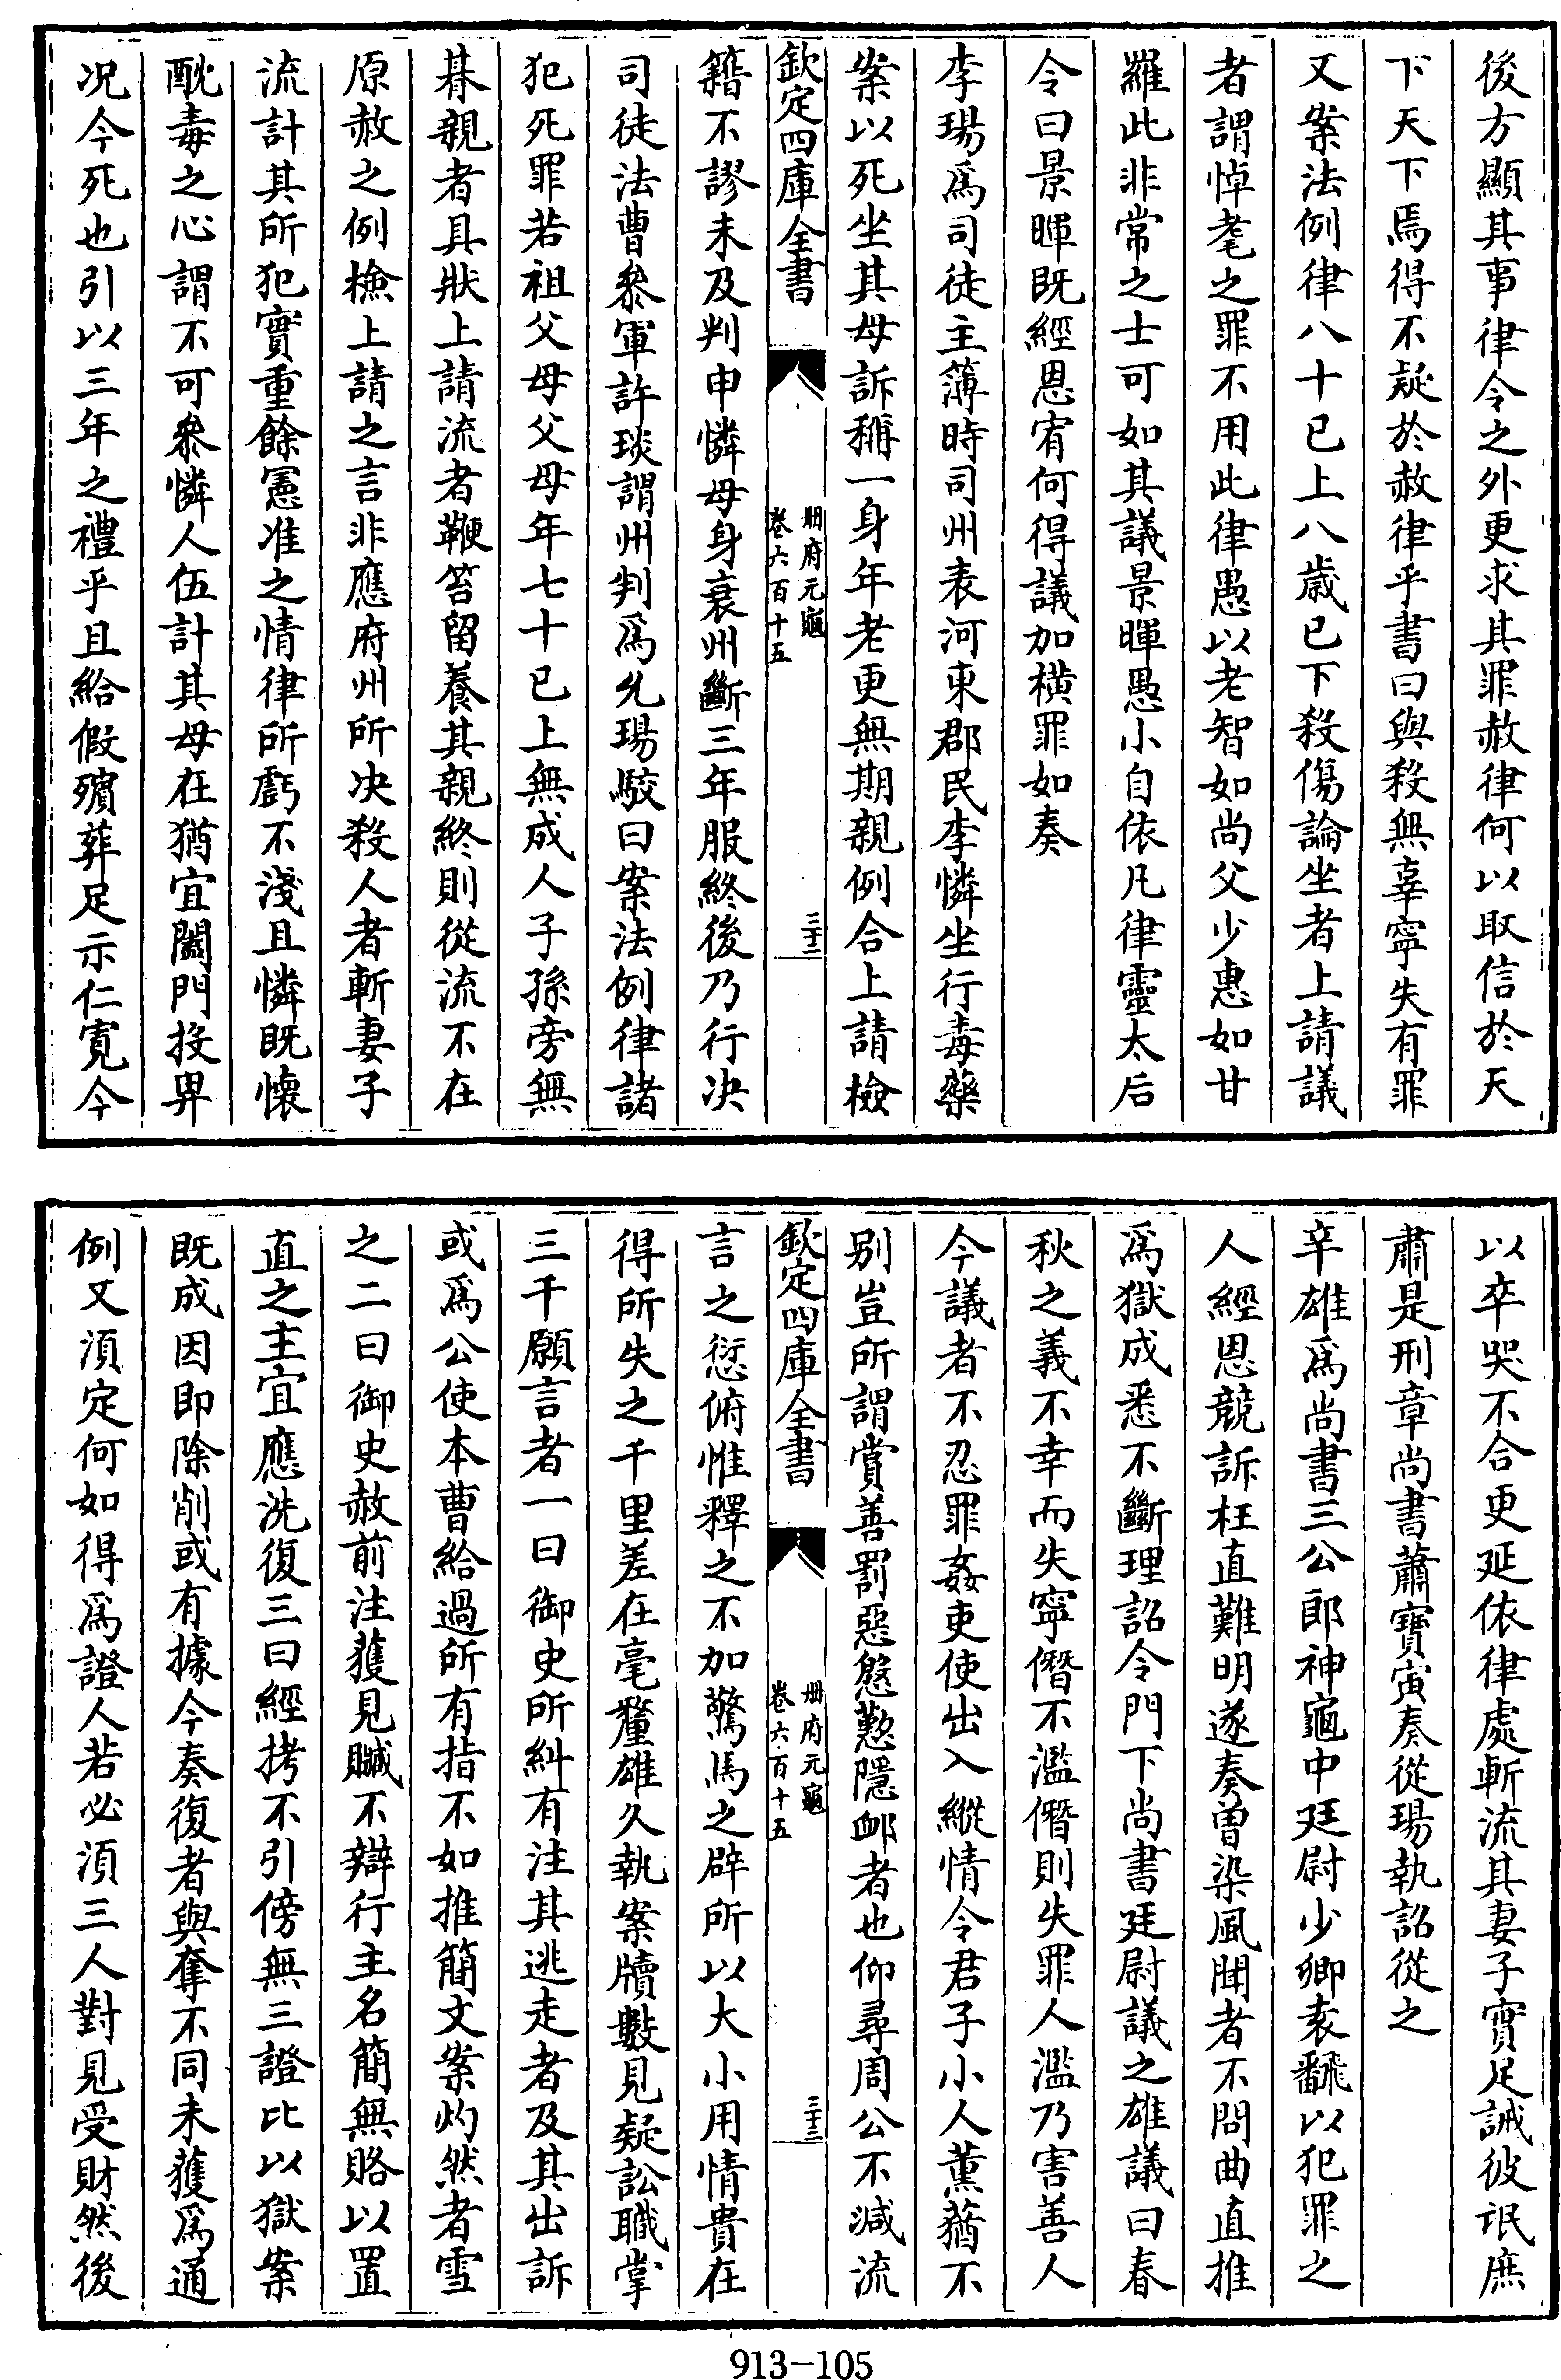 後方顯其事律令之外更求其罪赦律何以取信於天
下天下焉得不疑於赦律乎書曰與殺無辜寧失有罪
又案法例律八十已上八歲已下殺傷論坐者上請議
者謂悼耄之罪不用此律愚以老智如尚父少惠如甘
羅此非常之士可如其議景暉愚小自依凡律靈太后
令曰景暉既經恩宥何得議加橫罪如奏
李瑒為司徒主簿時司州表河東郡民李憐坐行毒藥
案以死坐其母訴稱一身年老更無期親例合上請檢
欽定四庫全書
冊府元龜
卷六百十五
三十二
籍不謬未及判申憐母身衰州斷三年服終後乃行决
司徒法曹叅軍許琰謂州判為允瑒駮曰案法例律諸
犯死罪若祖父母父母年七十已上無成人子孫旁無
朞親者具狀上請流者鞭笞留養其親終則從流不在
原赦之例檢上請之言非應府州所决殺人者斬妻子
流計其所犯實重餘憲准之情律所虧不淺且憐既懷
酖毒之心謂不可叅憐人伍計其母在猶宜闔門投畀
况今死也引以三年之禮乎且給假殯葬足示仁寛今
以卒哭不合更延依律處斬流其妻子實足誡彼氓庶
肅是刑章尚書蕭寶寅奏從瑒執詔從之
辛雄為尚書三公郎神龜中廷尉少卿袁翻以犯罪之
人經恩競訴枉直難明遂奏曽染風聞者不問曲直推
為獄成悉不斷理詔令門下尚書廷尉議之雄議曰春
秋之義不幸而失寧僭不濫僭則失罪人濫乃害善人
今議者不忍罪姦吏使出入縱情令君子小人薰蕕不
別豈所謂賞善罰惡慇懃隱䘏者也仰尋周公不減流
欽定四庫全書
冊府元龜
卷六百十五
三十三
言之愆俯惟釋之不加驚馬之辟所以大小用情貴在
得所失之千里差在毫釐雄久執案牘數見疑訟職掌
三千願言者一曰御史所糾有注其逃走者及其出訴
或為公使本曹給過所有指不如推簡文案灼然者雪
之二曰御史赦前注獲見贓不辯行主名簡無賂以置
直之主宜應洗復三曰經拷不引傍無三證比以獄案
既成因即除削或有據今奏復者與奪不同未獲為通
例又湏定何如得為證人若必湏三人對見受財然後
913-105